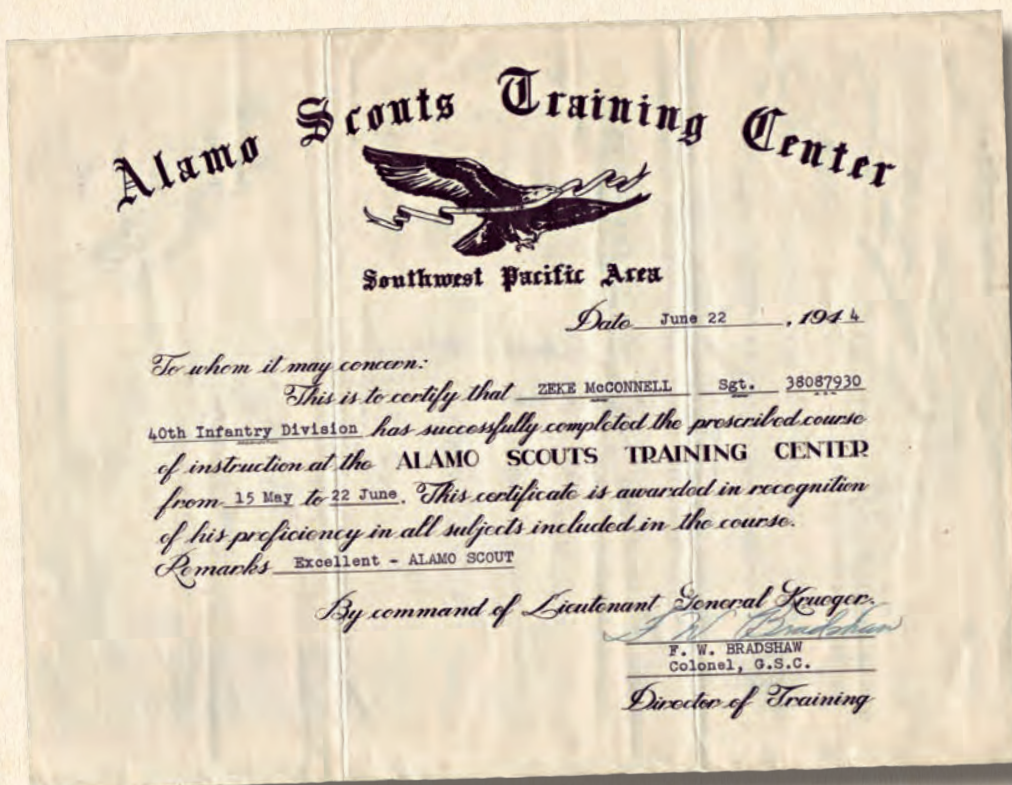 Alamo Scouts Training Center
Southwest Pacific Area
Date June 22, 1944
To whom it may concern:
This is to certify that ZEKE McCONNELL Sgt. 38087930
40th Infantry Division has successfully completed the prescribed course
of instruction at the ALAMO SCOUTS TRAINING CENTER
from 15 May to 22 June. This certificate is awarded in recognition
of his proficiency in all subjects included in the course.
Remarks Excellent - ALAMO SCOUT
By command of Lieutenant General Krueger.
F W Bradshaw
F. W. BRADSHAW
Colonel, G.S.C.
Director of Training